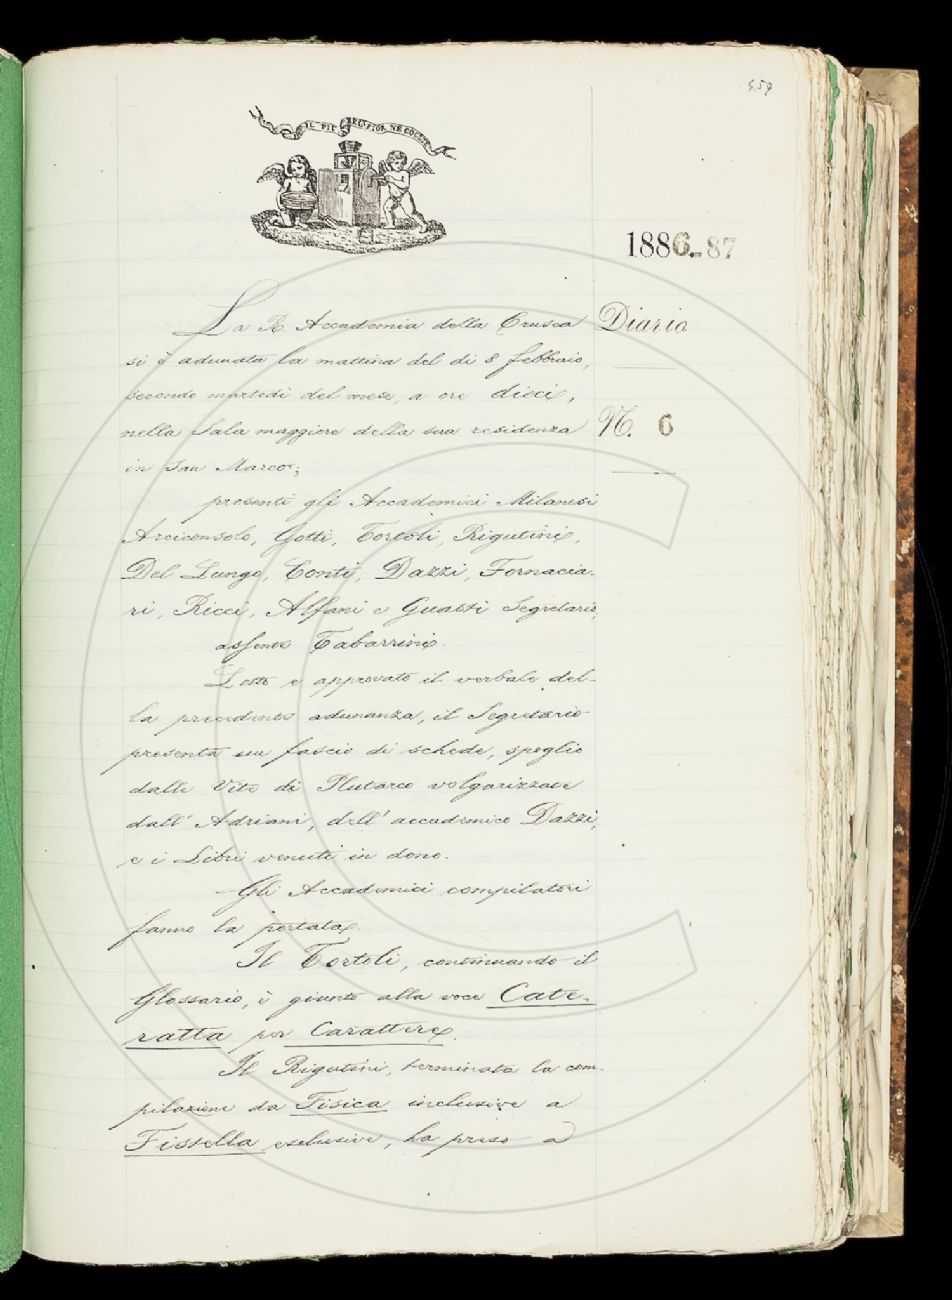 459
IL PIÙ BEL FIOR NE COGLIE
1886-87
La R. Accademia della Crusca
Diario
si è adunata la mattina del dì 8 febbraio,
secondo martedì del mese, a ore dieci,
nella Sala maggiore della sua residenza
N. 6
in San Marco;
presenti gli Accademici Milanesi
Arciconsolo, Gotti, Tortoli, Rigutini,
Del Lungo, Conti, Dazzi, Fornacia-
ri, Ricci, Alfani e Guasti Segretario,
assente Tabarrini.
Letto e approvato il verbale del-
la precedente adunanza, il Segretario
presenta un fascio di schede, spoglio
dalle Vite di Plutarco volgarizzate
dall' Adriani, dell' accademico Dazzi,
e i Libri venuti in dono.
Gli Accademici compilatori
fanno la portata.
Il Tortoli, continuando il
Glossario, è giunto alla voce Cate-
ratta per Carattere.
Il Rigutini, terminata la com-
pilazione da Fisica inclusive a
Fissella esclusive, ha preso a